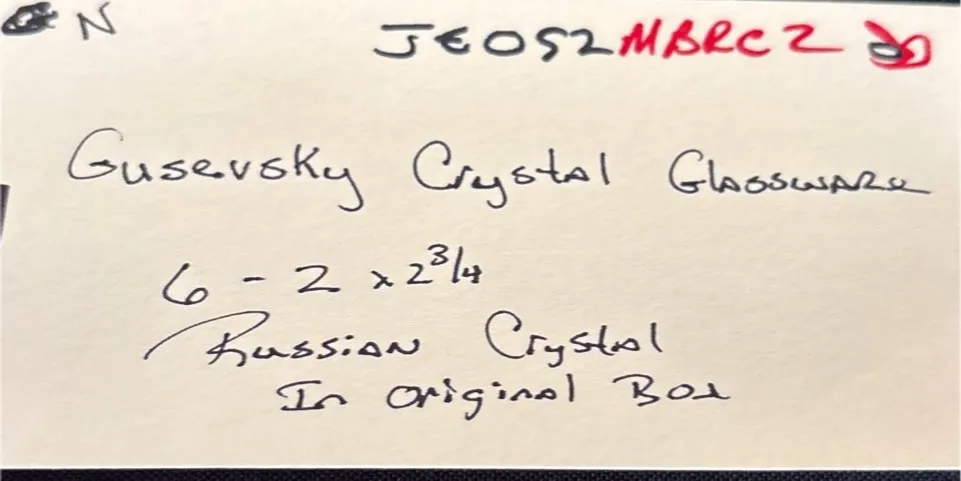 N
JE052MBRC2
Gusevsky Crystal Glassware
6 - 2 x 2 3/4
Russian Crystal
In Original Box